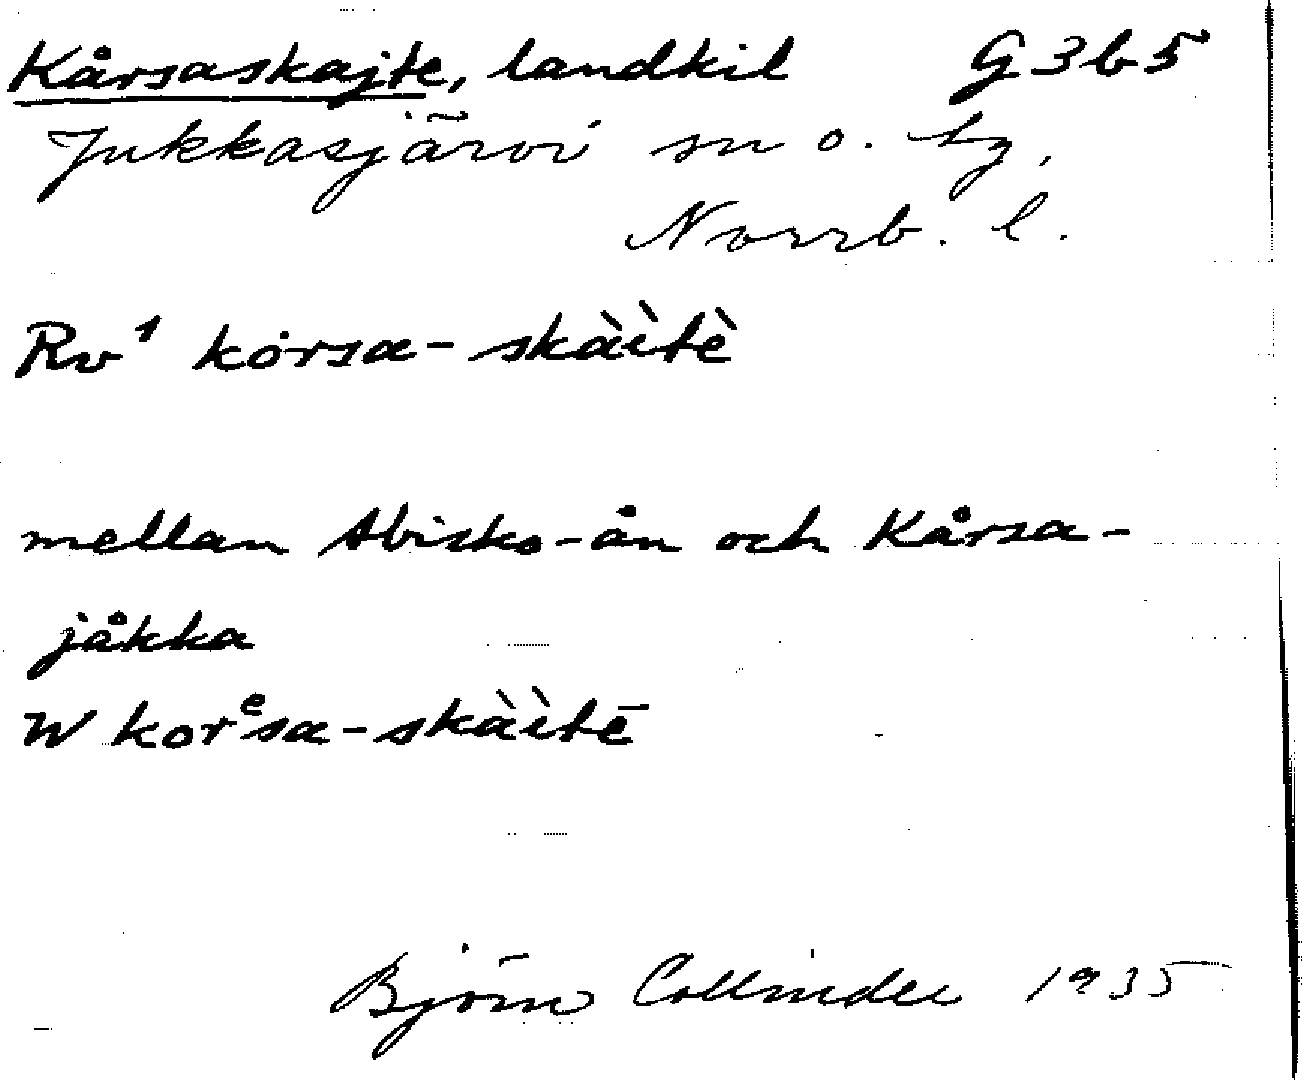 Kårsaskajte, landkil G3b5
Jukkasjärvi sn o. tg,
Norrb. l.
Rv¹ kȯrsa-skàìtè
mellan Abisko-ån och Kårsa-
jåkka
W korᵉsa-skàìtē
Björn Collinder 1935